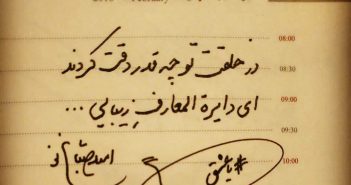 08:00
در خلقت تو چه قدر دقت کردند
08:30
ای دایرة المعارف زیبایی ...
09:00
09:30
#یا_عشق
امید صباغ نو
10:00